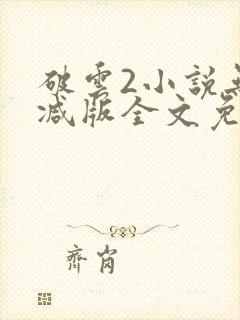 破雲2小說
減版全文免
齊肖